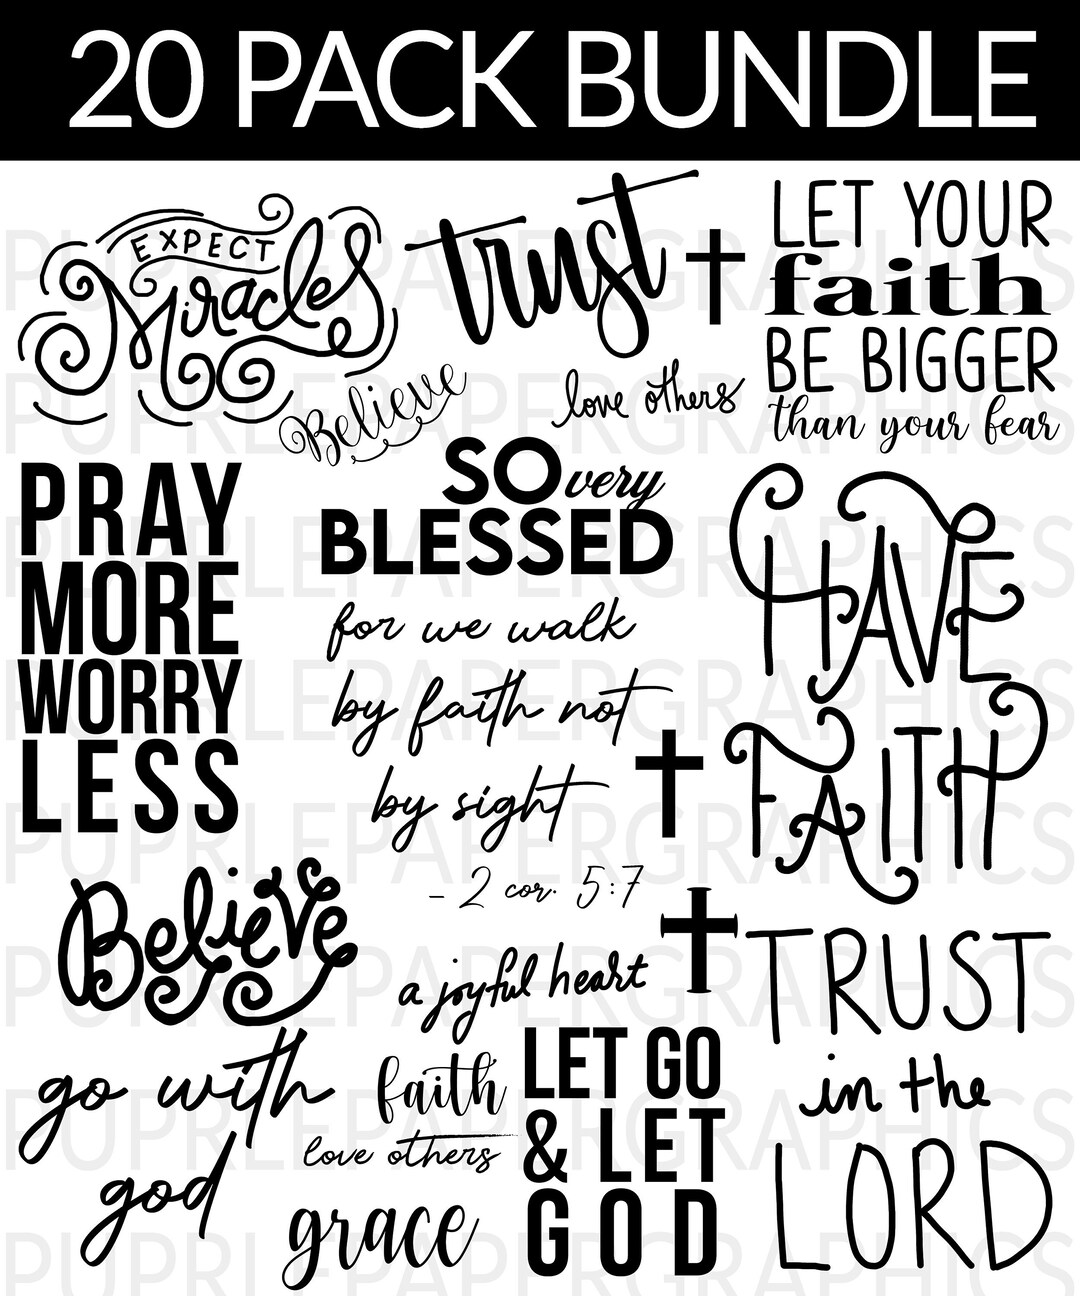 20 PACK BUNDLE
EXPECT
Miracles
trust
LET YOUR
faith
BE BIGGER
than your fear
Believe
love others
PRAY
MORE
WORRY
LESS
SO very
BLESSED
for we walk
by faith not
by sight
- 2 cor. 5:7
HAVE
FAITH
Believe
a joyful heart
TRUST
in the
LORD
go with
god
faith
love others
grace
LET GO
& LET
GOD
PUPRLEPAPERGRAPHICS
PUPRLEPAPERGRAPHICS
PUPRLEPAPERGRAPHICS
PUPRLEPAPERGRAPHICS
PUPRLEPAPERGRAPHICS
PUPRLEPAPERGRAPHICS
PUPRLEPAPERGRAPHICS
PUPRLEPAPERGRAPHICS